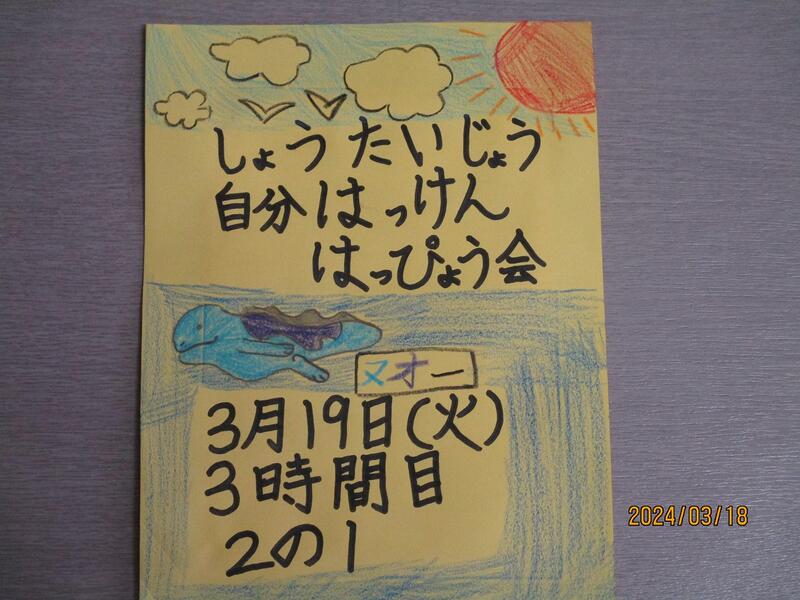 しょうたいじょう
自分はっけん
はっぴょう会
ヌオー
3月19日(火)
3時間目
2の1
2024/03/18